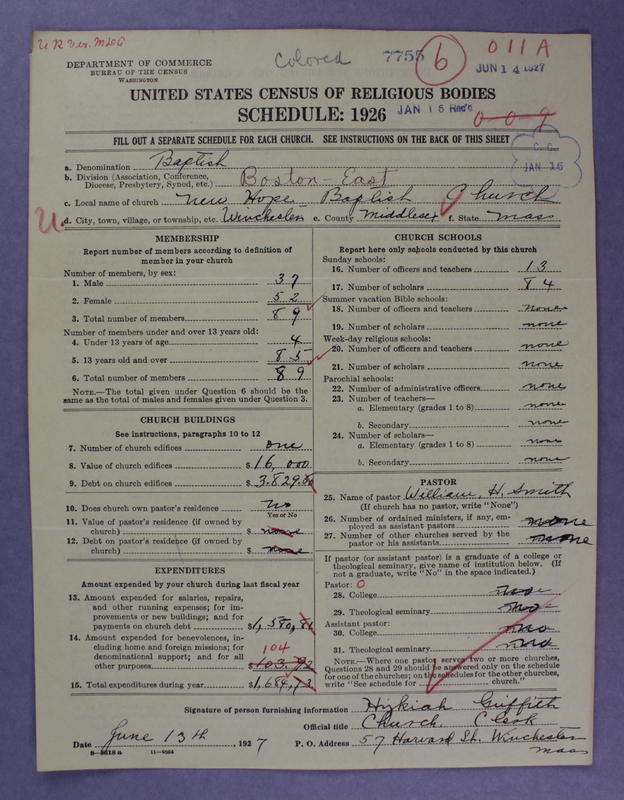 U R Ver. MLG
Colored
7755
6
011A
DEPARTMENT OF COMMERCE
BUREAU OF THE CENSUS
WASHINGTON
JUN 14 1927
UNITED STATES CENSUS OF RELIGIOUS BODIES
SCHEDULE: 1926
JAN 15 Rec'd
0-0-9
FILL OUT A SEPARATE SCHEDULE FOR EACH CHURCH. SEE INSTRUCTIONS ON THE BACK OF THIS SHEET
JAN 16
a. Denomination Baptist
b. Division (Association, Conference, Diocese, Presbytery, Synod, etc.) Boston-East
c. Local name of church New Hope Baptist Church
U.
d. City, town, village, or township, etc. Winchester e. County Middlesex f. State Mass
MEMBERSHIP
Report number of members according to definition of
member in your church
Number of members, by sex:
1. Male 37
2. Female 52
3. Total number of members 89
Number of members under and over 13 years old:
4. Under 13 years of age 4
5. 13 years old and over 85
6. Total number of members 89
NOTE.—The total given under Question 6 should be the
same as the total of males and females given under Question 3.
CHURCH BUILDINGS
See instructions, paragraphs 10 to 12
7. Number of church edifices one
8. Value of church edifices $16,000
9. Debt on church edifices $3.829.
10. Does church own pastor's residence no
Yes or No
11. Value of pastor's residence (if owned by
church) $ none
12. Debt on pastor's residence (if owned by
church) $ none
EXPENDITURES
Amount expended by your church during last fiscal year
13. Amount expended for salaries, repairs,
and other running expenses; for im-
provements or new buildings; and for
payments on church debt $1,580,81
14. Amount expended for benevolences, in-
cluding home and foreign missions; for
denominational support; and for all
104
other purposes $103.92
15. Total expenditures during year $1,684,73
CHURCH SCHOOLS
Report here only schools conducted by this church
Sunday schools:
16. Number of officers and teachers 13
17. Number of scholars 84
Summer vacation Bible schools:
18. Number of officers and teachers none
19. Number of scholars none
Week-day religious schools:
20. Number of officers and teachers none
21. Number of scholars none
Parochial schools:
22. Number of administrative officers none
23. Number of teachers—
a. Elementary (grades 1 to 8) none
b. Secondary none
24. Number of scholars—
a. Elementary (grades 1 to 8) none
b. Secondary none
PASTOR
25. Name of pastor William, H. Smith
(If church has no pastor, write "None")
26. Number of ordained ministers, if any, em-
ployed as assistant pastors none
27. Number of other churches served by the
pastor or his assistants none
If pastor (or assistant pastor) is a graduate of a college or
theological seminary, give name of institution below. (If
not a graduate, write "No" in the space indicated.)
Pastor: 0
28. College
29. Theological seminary
Assistant pastor:
30. College
31. Theological seminary
NOTE.—Where one pastor serves two or more churches,
Questions 28 and 29 should be answered only on the schedule
for one of the churches; on the schedules for the other churches,
write "See schedule for church."
Signature of person furnishing information Hizkiah Griffith
Official title Church Clerk
Date June 13th, 1927 P. O. Address 57 Harvard St. Winchester
Mass
8—5618 a 11—9564